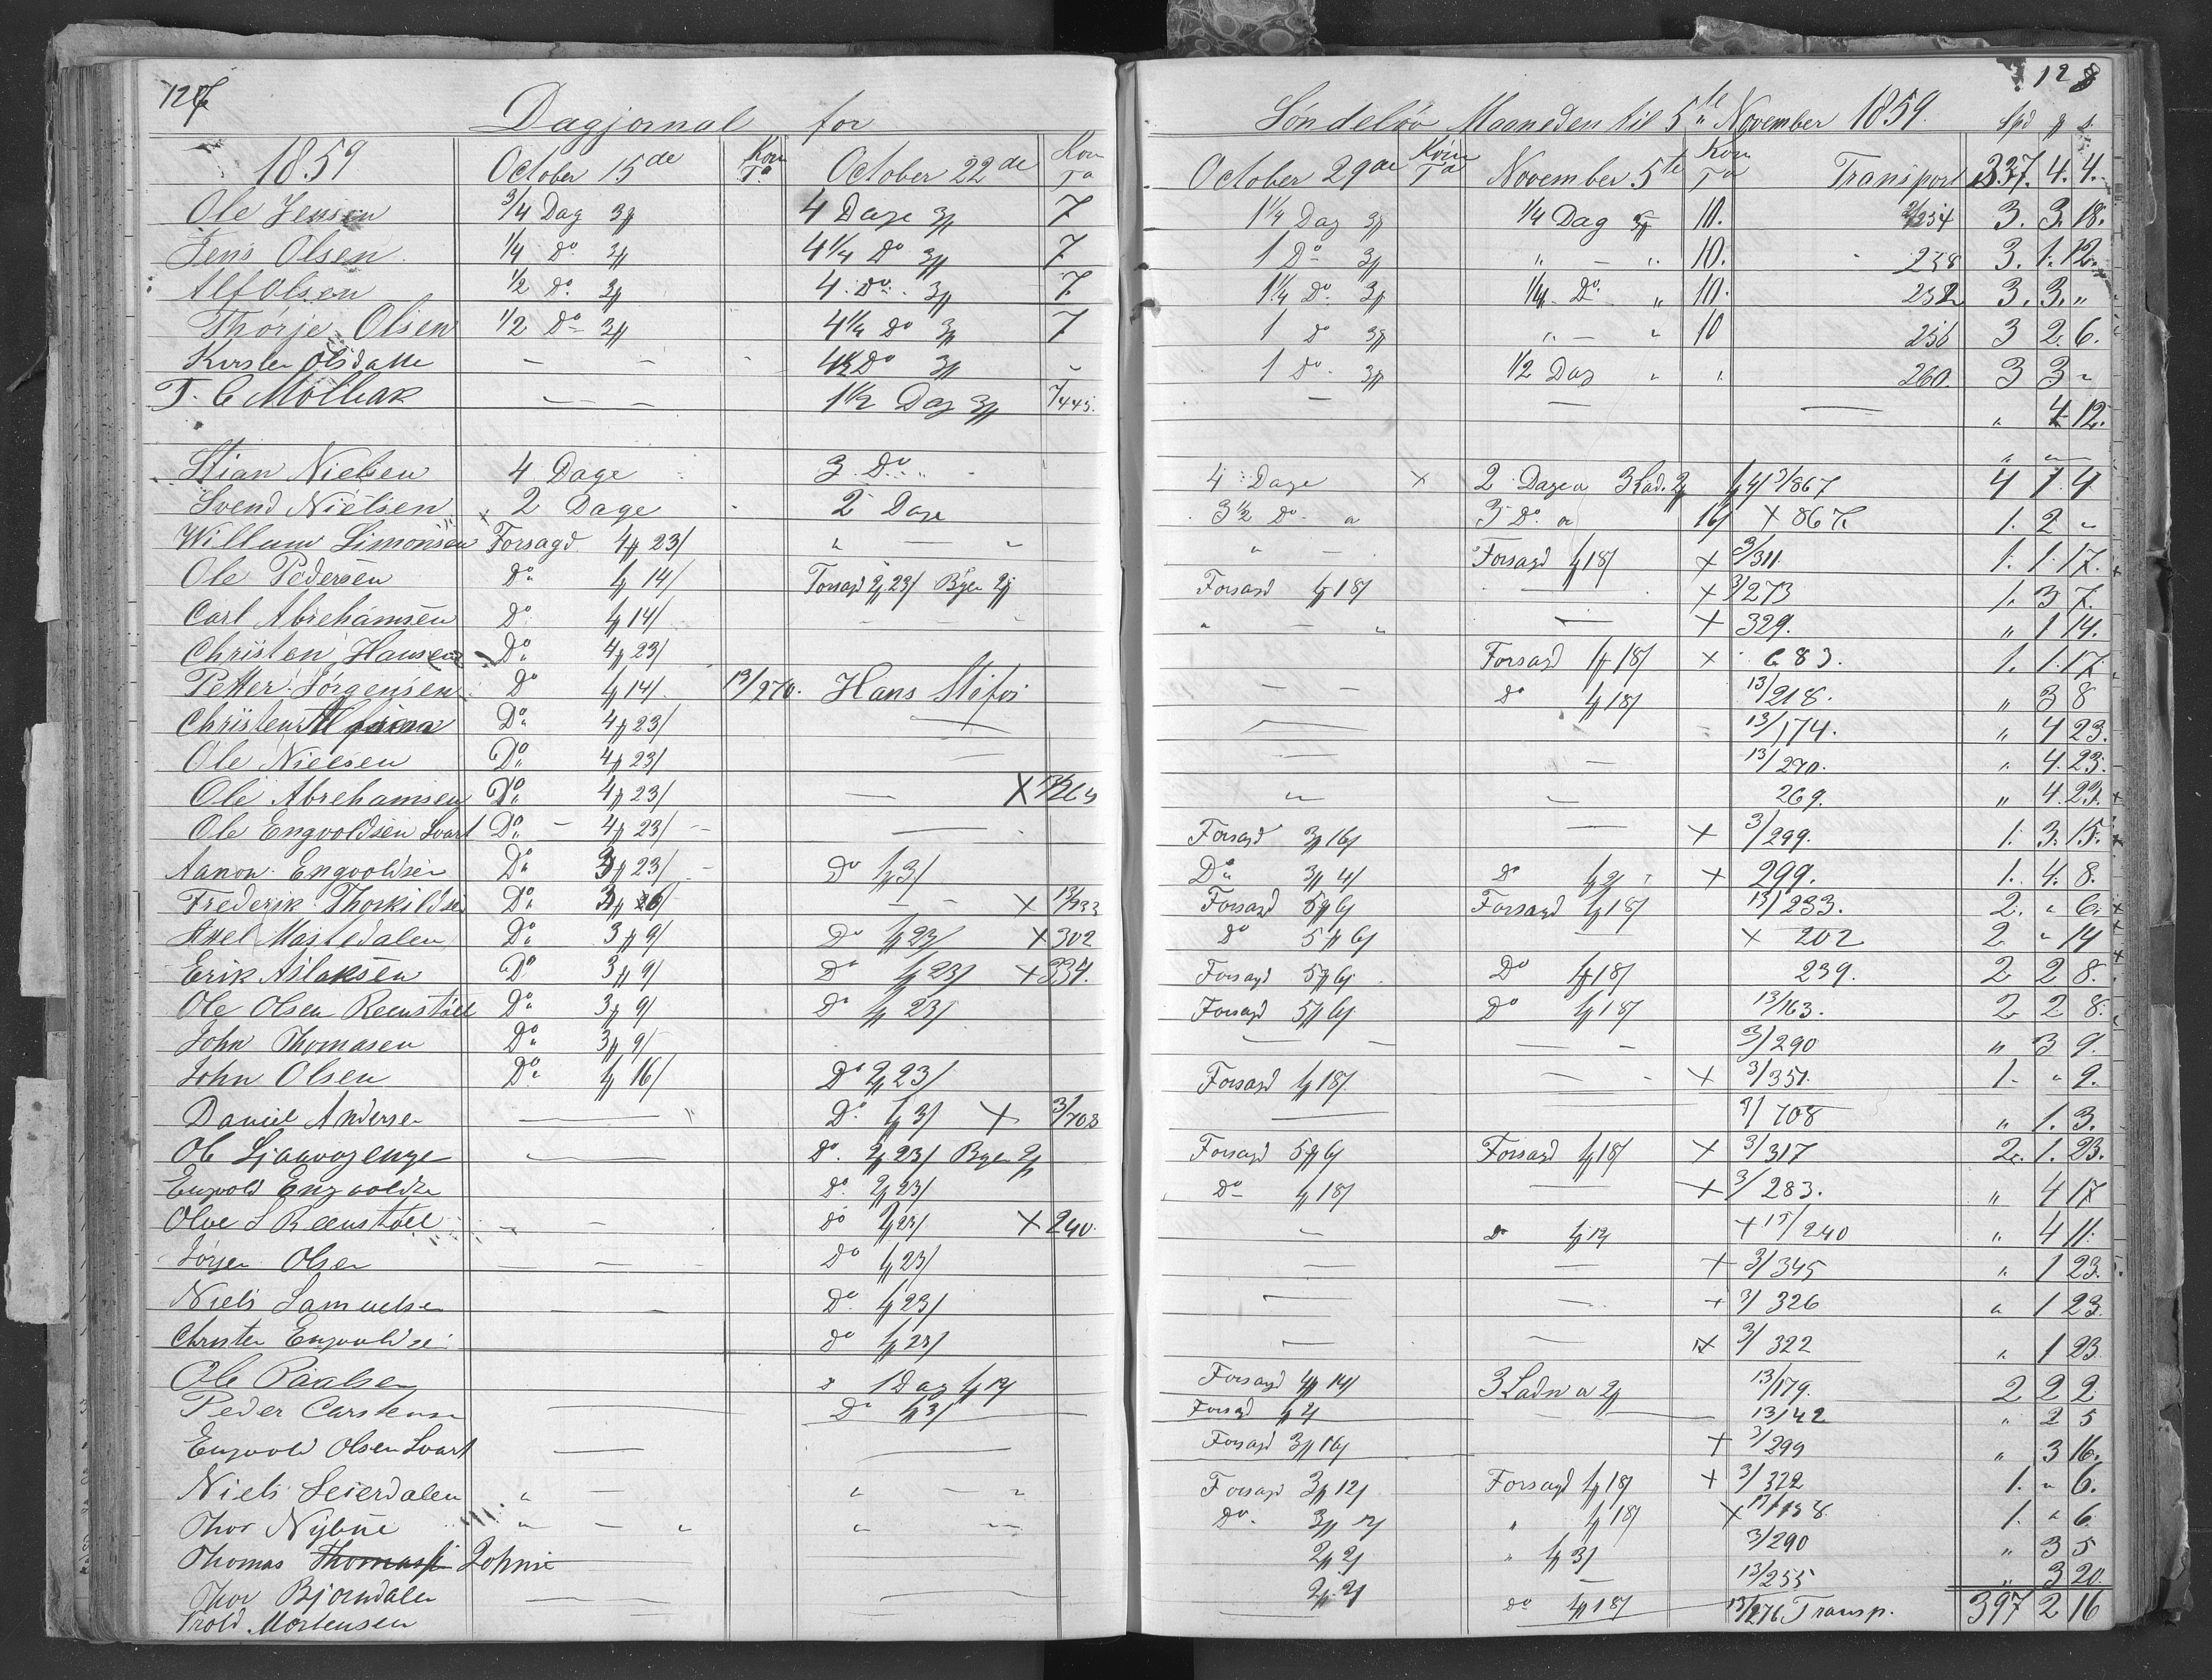 127
Dagjornal for
1859 October 15de Korn Ta October 22de Korn Ta
Ole Jensen 3/4 Dag 3 4 Dage 3 7
Jens Olsen 1/4 Do 3 4 1/4 Do 3 7
Alf Olsen 1/2 Do 3 4 Do 3 7
Thorje Olsen 1/2 Do 3 4 1/4 Do 3 7
Kirsten Olsdatte — — 4 1/2 Do 3 "
T. C. Mollbak — — 1 1/2 Dag 3
Stian Nielsen 4 Dage 3 Do
Svend Nielsen x 2 Dage 2 Dage
Willum Simonsen Forsagd 4 23/ " — "
Ole Pedersen Do 1 14/ Forsagd 2 23/ Byen 2
Carl Abrehamsen Do 1 14/ — — —
Christen Hansen Do 4 23/
Petter Jørgensen Do 1 14/ 13/270. Hans
Christen Do 4 23/ —
Ole Nielsen Do 4 23/ —
Ole Abrehamsen Do 4 23/ — X 13/269
Ole Engvoldsen Svart Do 4 23/ —
Aanon Engvoldsen Do 3 23/ Do 1 3/
Frederik Thorkildsen Do 3 — — X 13/233
Axel Mastedalen Do 3 9/ Do 1 23/ X 302
Erik Aslaksen Do 3 9/ Do 1 23/ X 334.
Ole Olsen Reenstøll Do 3 9/ Do 1 23/
John Thomasen Do 3 9/
John Olsen Do 1 16/ Do 2 23/
Daniel Andersen — Do 1 3/ X 3/708
Ol Sjaavagenge — Do 2 23/ Byen 2
Engvold Engvoldsen Do 2 23/
Olve S Reenstøll — — Do 1 23/ X 240.
Jørgen Olsen — — — Do 1 23/
Niels Samuelsen — — Do 1 23/
Christen Engvoldsen Do 1 23/
Ole Paalsen 1 Dag 1 12/
Peder Carstensen — Do 1 3/
Engvold Olsen Svart — —
Niels Leierdalen " — " — "
Thor Nybue " — " " —
Thomas Johnsen
Thor Bjorndalen
Trold Mortensen — — — —
128
Søndeløv Maaneden til 5te November 1859. Spd
October 29de Korn Ta November 5te Korn Ta Transport 337. 4. 4.
1 1/4 Dag 3 1/4 Dag 10. 3/254 3. 3. 18.
1 Do 3 " — " 10. 258 3. 1. 12.
1 1/4 Do 3 1/4 Do " 10. 252 3. 3. "
1 Do 3 " — " 10 256 3 2. 6.
1 Do 3 1/2 Dag " " 260. 3 3 "
— — — " 4 12.
4 Dage x 2 Dage a 3 Lad. 2 3/867 4 1. 4
3 1/2 Do a 3 Do a 16/ x 867 1. 2 "
" — Forsagd 1 18/ x 3/311. 1. 1. 17.
Forsagd 1 18/ — x 3/273 1. 3 7.
" — " — x 329. " 1 14.
Forsagd 1 18/ x 683. 1. 1. 17.
— — Do 1 18/ 13/218. " 3 8
— — 13/174. " 4 23.
— — 13/270. " 4. 23.
" " 269. " 4. 23.
Forsagd 3 16/ — x 3/299. 1. 3. 15.
Do 3 4/ Do 1 2/ x 299. 1. 4. 8.
Forsagd 5 6/ Forsagd 1 18/ 13/233. 2. " 6.
Do 5 6/ x 202 2 " 14
Forsagd 5 6/ Do 1 18/ 239. 2 2 8.
Forsagd 5 6/ Do 1 18/ 13/163. 2 2 8.
— — — — 3/290 " 3 9.
Forsagd 1 18/ — — x 3/351. 1. " 9.
— 3/708 " 1. 3.
Forsagd 5 6/ Forsagd 1 18/ x 3/317 2. 1. 23.
Do 1 18/ — x 3/283. " 4 17
" Do 1 12/ x 13/240 " 4 11.
— — x 3/345 " 1 23.
— — x 3/326 " 1 23.
— — x 3/322 " 1 23.
Forsagd 4 14/ 3 Ladn a 2 13/179. 2 2 2
Forsagd 1 2/ — 13/42 " 2 5
Forsagd 3 16/ x 3/299 " 3 16.
Forsagd 3 12/ Forsagd 1 18/ x 3/322 1. " 6.
Do 3 12/ " 1 18/ x 1. " 6
2 2/ " 1 3/ 3/290 " 3 5
2 2/ — 13/255 " 3 20
Do 1 18/ 13/276 Transp. 397 2 16